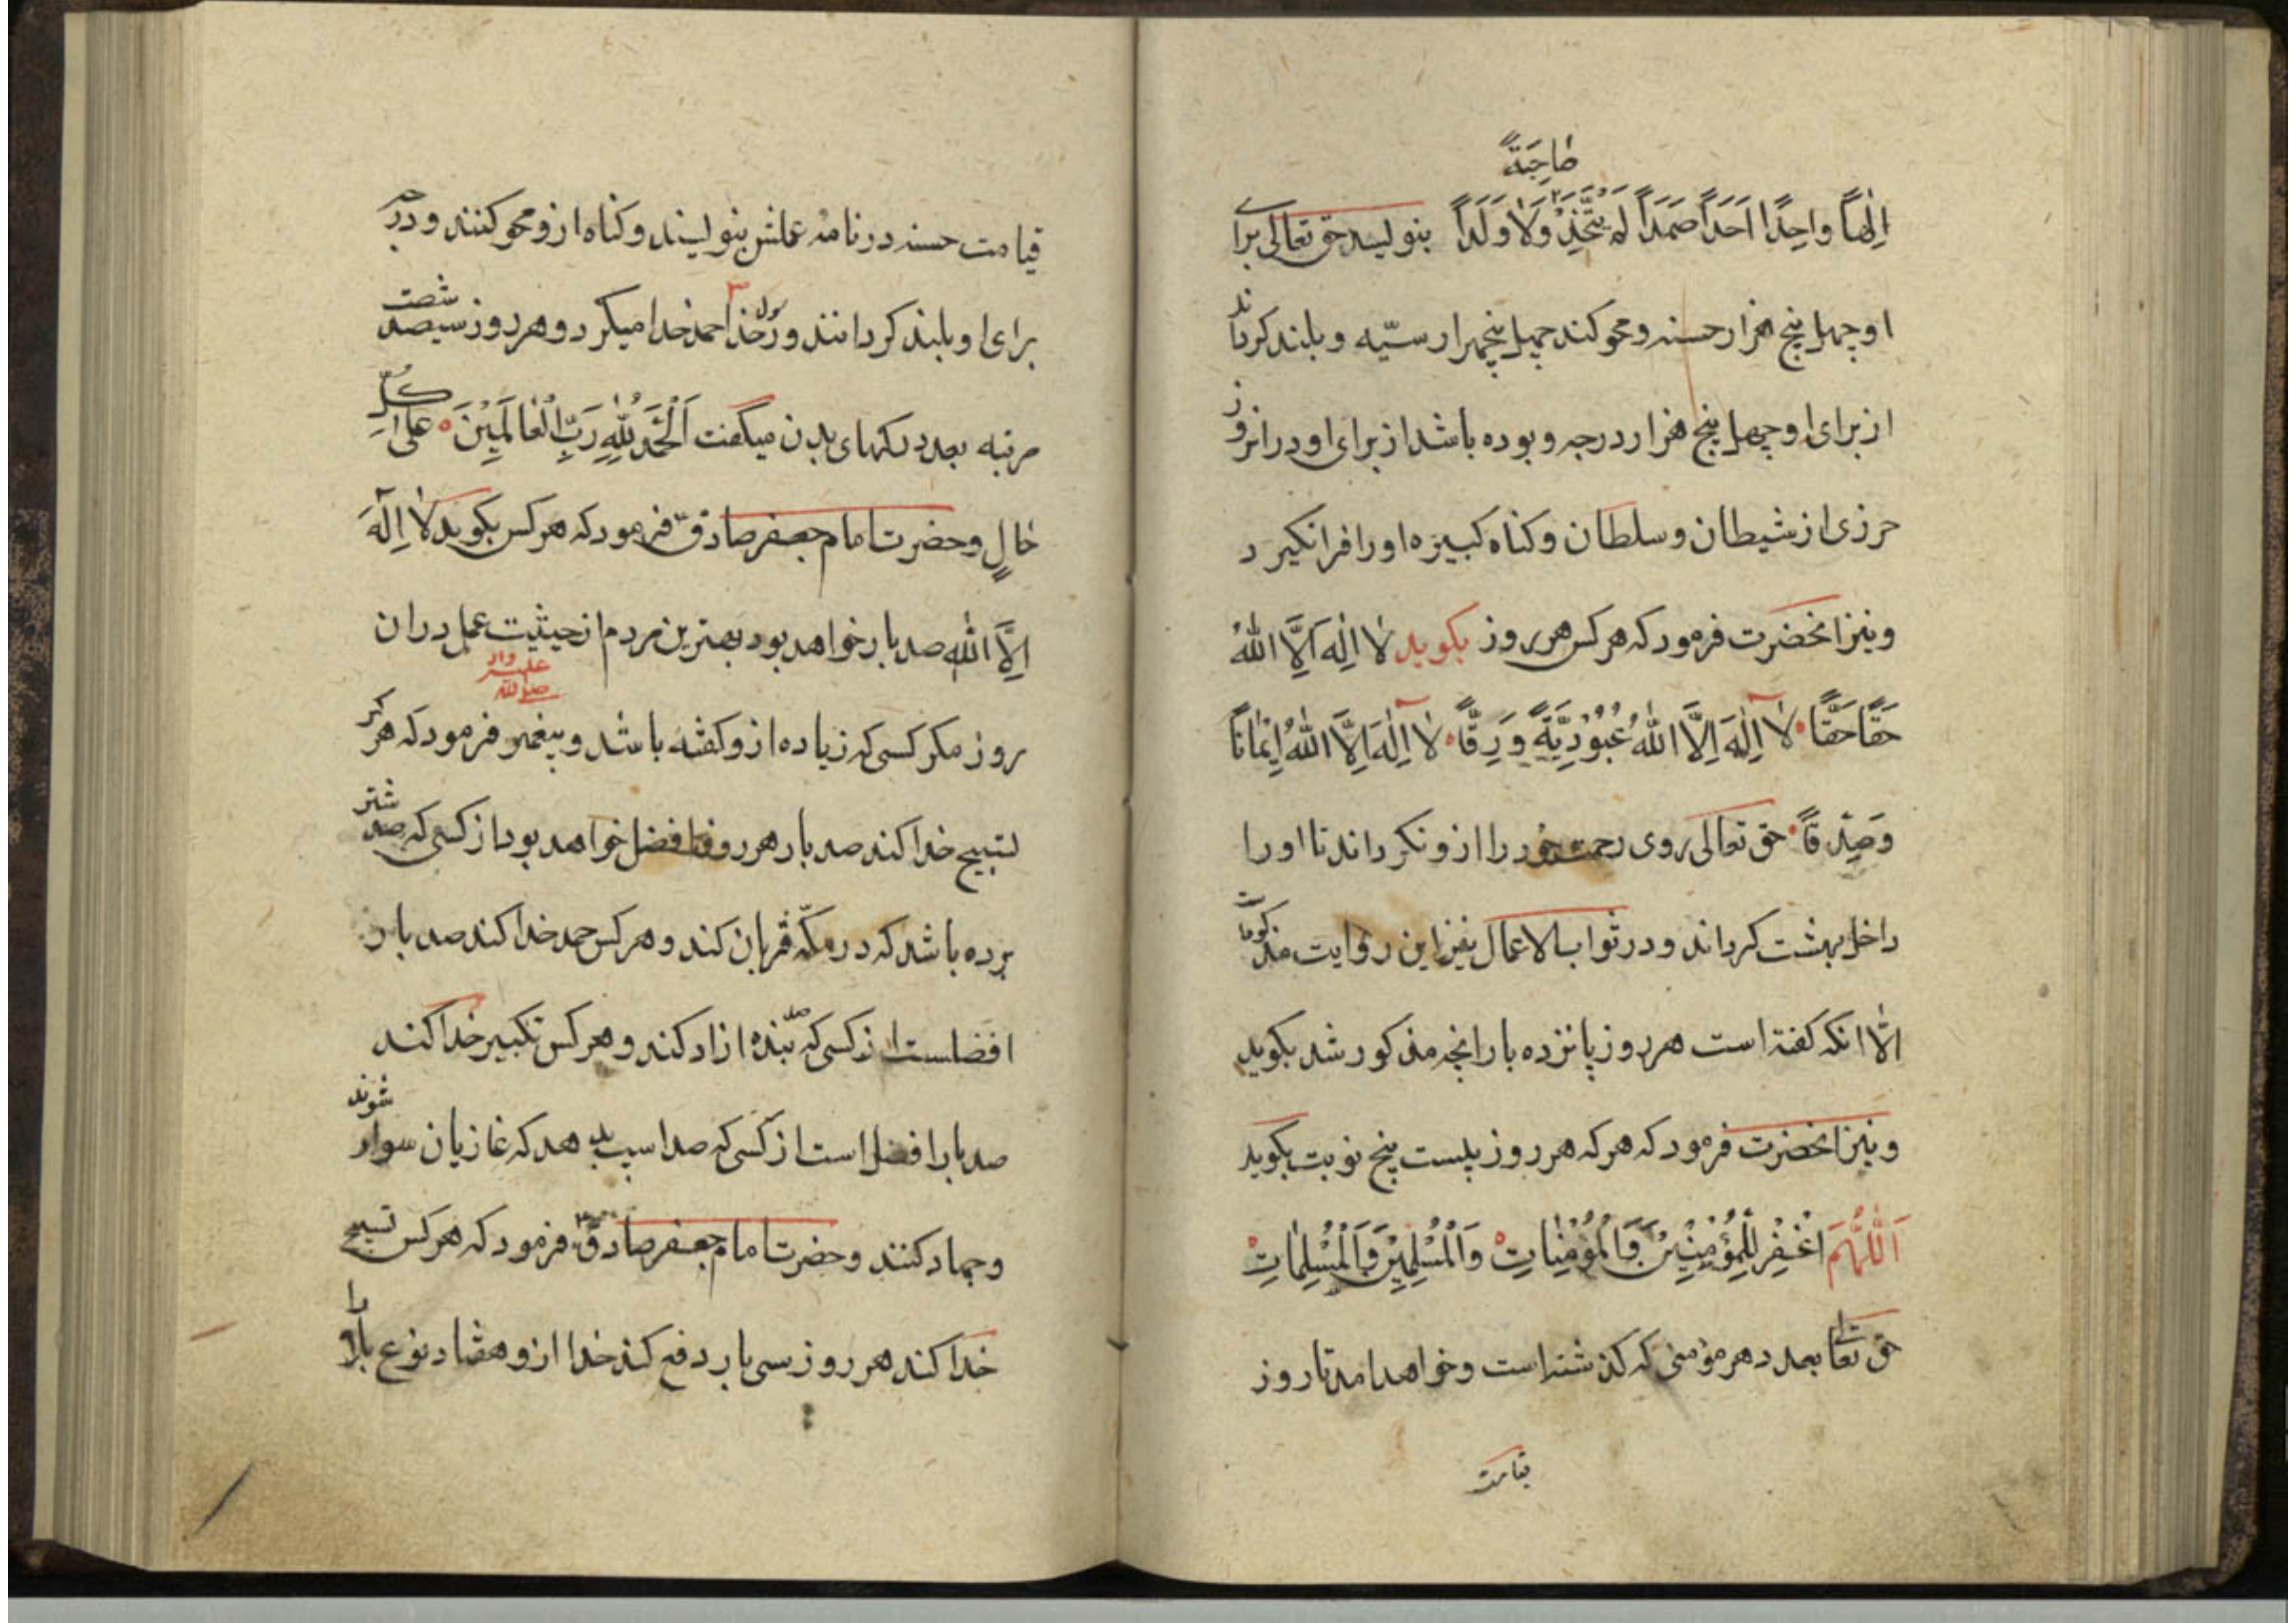 صاحِبَةً
اِلٰهاً واحِدًا اَحَدًا صَمَدًا لَمْ يَتَّخِذْ وَلَا وَلَدًا بنویسد حق تعالی برای
او چهل پنج هزار حسنه و محو کند چهل پنجهزار سیّه و بلند کرداند
از برای او چهل پنج هزار درجه و بوده باشد از برای او در انروز
حرزی از شیطان و سلطان و کناه کبیره او را فرانکیرد
و نیز انحضرت فرمود که هر کس هر روز بکوید لا اِلٰهَ اِلَّا اللّٰهُ
حَقًّا حَقًّا لا اِلٰهَ اِلَّا اللّٰهُ عُبُودِيَّةً وَرِقًّا لا اِلٰهَ اِلَّا اللّٰهُ اِيْمَانًا
وَصِدْقًا حق تعالی روی رحمت خود را ازو نکرداند تا او را
داخل بهشت کرداند و در ثواب الاعمال نیز این روایت مذکور است
الّا انکه کفته است هر روز پانزده بار انچه مذکور شد بکوید
و نیز انحضرت فرمود که هر که هر روز بیست پنج نوبت بکوید
اَللّٰهُمَّ اغْفِرْ لِلْمُؤْمِنِيْنَ وَالْمُؤْمِنَاتِ وَالْمُسْلِمِيْنَ وَالْمُسْلِمَاتِ
حق تعالی بعدد هر مؤمنی که کذشته است و خواهد امد تا روز
قیامت
قیامت حسنه در نامه عملش بنویسند و کناه ازو محو کنند و درجه
برای او بلند کردانند و رسول خدا حمد خدا میکرد و هر روز سیصد شصت
مرتبه بعدد رکهای بدن میکفت اَلْحَمْدُ لِلّٰهِ رَبِّ الْعَالَمِيْنَ عَلٰی كُلِّ
حَالٍ و حضرت امام جعفر صادق فرمود که هر کس بکوید لا اِلٰهَ
اِلَّا اللّٰه صد بار خواهد بود بهترین مردم از حیثیت عمل در ان
روز مکر کسی که زیاده ازو کفته باشد و پیغمبر صلی الله علیه واله فرمود که هر که
تسبیح خدا کند صد بار هر روز افضل خواهد بود از کسی که صد شتر
برده باشد که در مکّه قربان کند و هر کس حمد خدا کند صد بار
افضلست از کسی که صد بنده ازاد کند و هر کس تکبیر خدا کند
صد بار افضل است از کسی که صد اسب بدهد که غازیان سوار شوند
و جهاد کنند و حضرت امام جعفر صادق فرمود که هر کس تسبیح
خدا کند هر روز سی بار دفع کند خدا ازو هفتاد نوع بلا را